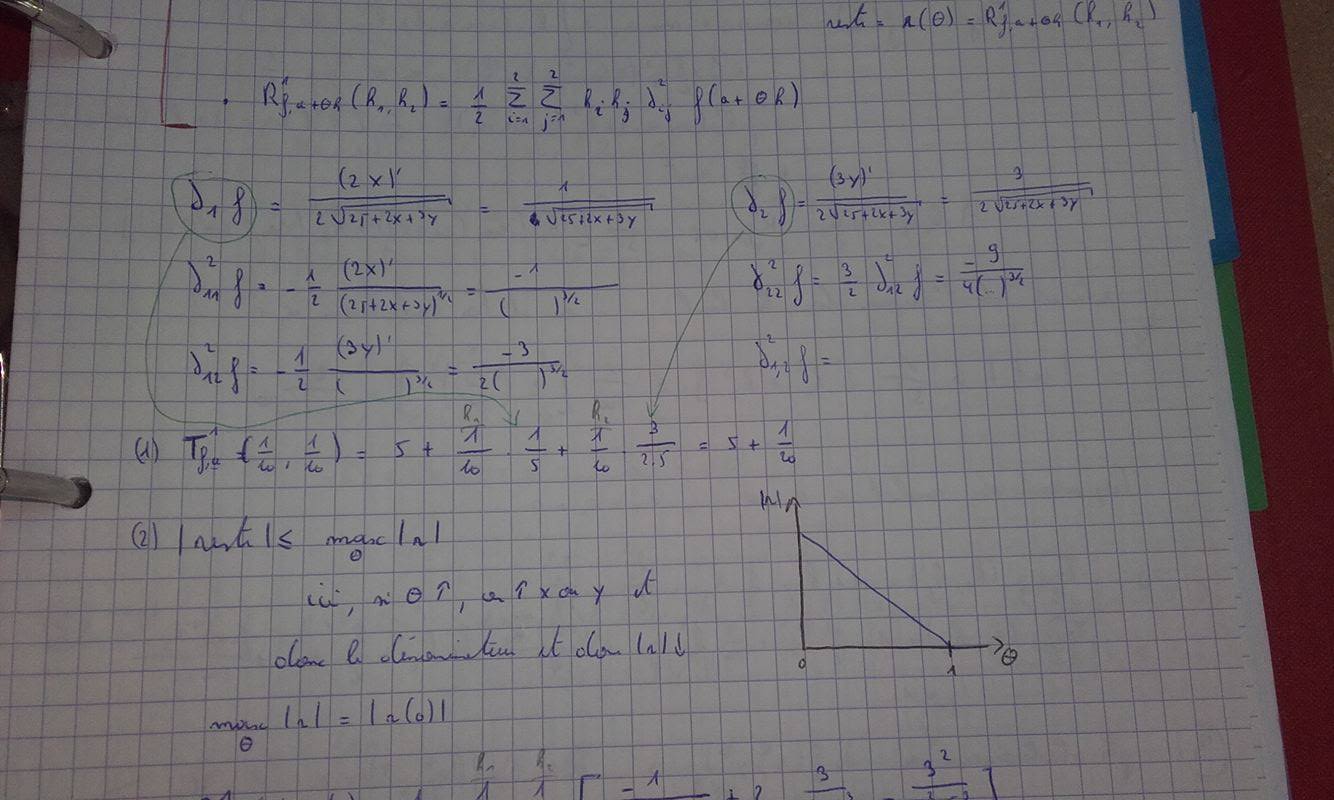 rest = r(θ) = R¹f,a+θh (h₁, h₂)
. R¹f,a+θh (h₁, h₂) = 1/2 Σ²i=1 Σ²j=1 hi hj ∂²ij f(a + θh)
∂₁ f = (2x)' / 2√25+2x+3y = 1 / √25+2x+3y ∂₂ f = (3y)' / 2√25+2x+3y = 3 / 2√25+2x+3y
∂²₁₁ f = - 1/2 (2x)' / (25+2x+3y)^3/2 = -1 / ( )^3/2 ∂²₂₂ f = 3/2 ∂²₁₂ f = -9 / 4(...)^3/2
∂²₁₂ f = - 1/2 (3y)' / ( )^3/2 = -3 / 2( )^3/2 ∂²₁,₂ f =
h₁ h₂
(1) T¹f,a (1/20, 1/20) = 5 + 1/20 . 1/5 + 1/20 . 3/2.5 = 5 + 1/20
|r|
(2) |reste| ≤ max θ |r|
ici, si θ ↑, on ↑ x ou y et
donc le dénominateur et donc |r| ↓
0 1 θ
max θ |r| = |r(0)|
h₁ h₂
1 1 [ -1 + 2 3 3²